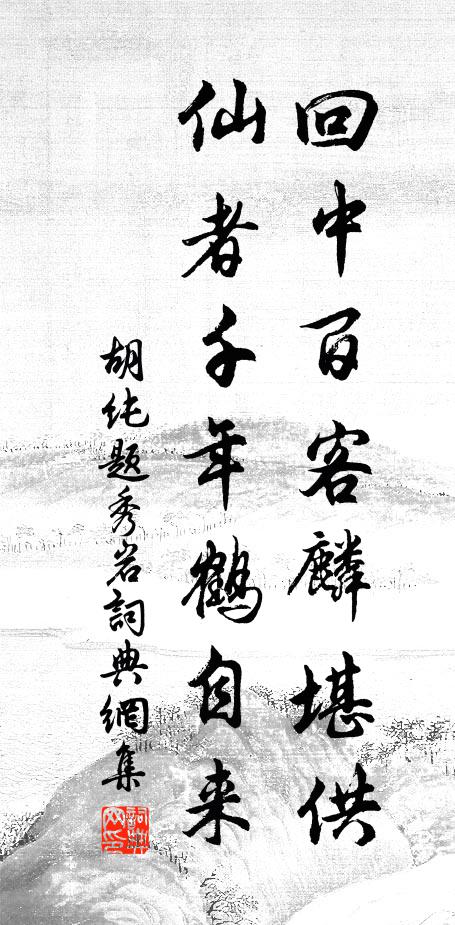 回中百客麟堪供
仙者千年鹤自来
胡纯题秀岩词典網集